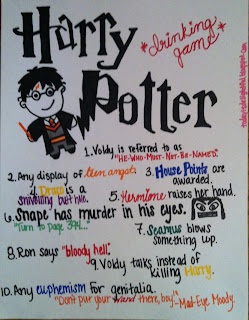 Harry
*drinking
game*
Potter
1. Voldy is referred to as
"HE-WHO-MUST-NOT-BE-NAMED".
2. Any display of teen angst.
3. House Points are
awarded.
4. Draco is a
snivelling butthole.
5. Hermione raises her hand.
6. Snape has murder in his eyes.
"Turn to page 394..."
7. Seamus blows
something up.
8. Ron says "bloody hell".
9. Voldy talks instead of
killing Harry.
10. Any euphemism for genitalia.
"Don't put your wand there, boy!" Mad-Eye Moody.